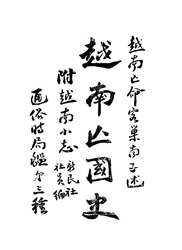 越南亡命客巢南子述
越南亡國史
附越南小志 新民社社員編
通俗時局鑑第三種